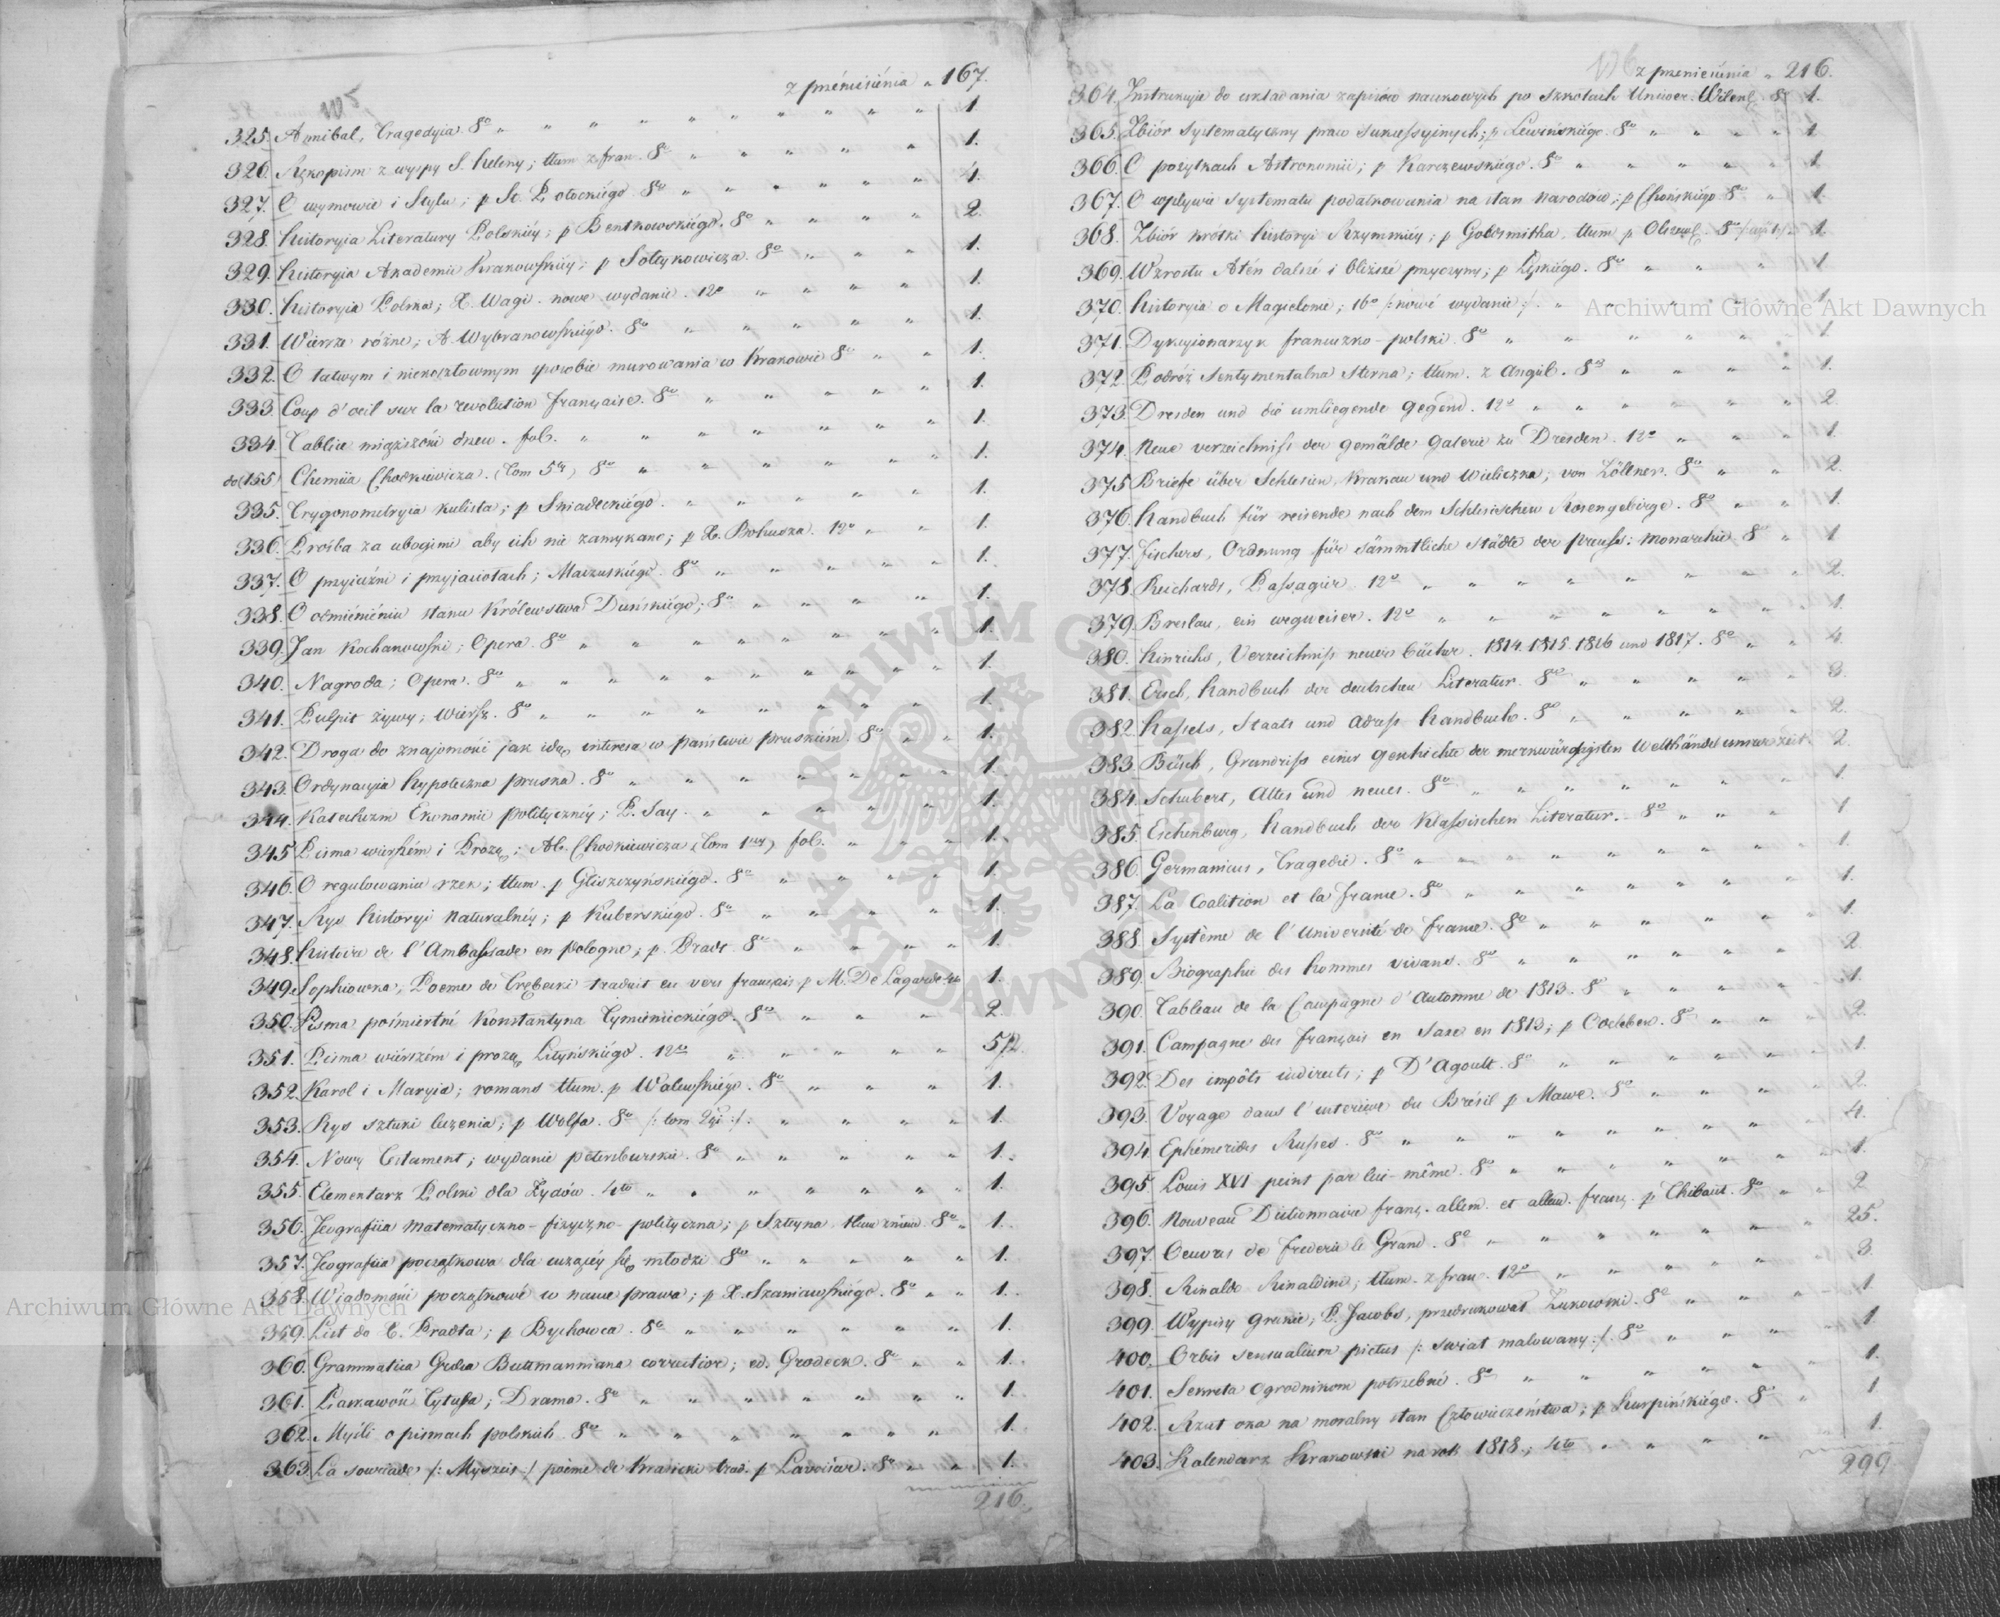 105
z przéniesiénia „ 167.
325. Annibal, Tragedyia. 8º „ 1.
326. Rękopism z wyspy S. Heleny; tłum. z fran. 8º „ 1.
327. O wymowie i Stylu; p St. Potockiégo. 8º „ 4.
328. Historyia Literatury Polskiéy; p Bentkowskiégo. 8º „ 2.
329. Historyia Akademii Krakowskiéy; p Sołtykowicza. 8º „ 1.
330. Historyia Polska; X. Wagi. nowe wydanie. 12º „ 1.
331. Wiersze różne; A. Wybranowskiégo. 8º „ 1.
332. O łatwym i niekosztownym sposobie murowania w Krakowie 8º „ 1.
333. Coup d'oeil sur la revolution française. 8º „ 1.
334. Tablice miąższości drzew. fol. „ 1.
do(155) Chemiia Chodkiewicza. (Tom 5ty) 8º „ 1.
335. Trygonometryia kulista; p Sniadeckiégo. „ 1.
336. Prośba za ubogimi aby ich nie zamykano; p X. Bohusza. 12º „ 1.
337. O przyiaźni i przyjaciołach; Maczuskiégo. 8º „ 1.
338. O odmiénieniu stanu Królewstwa Duńskiégo; 8º „ 1.
339. Jan Kochanowski; Opera. 8º „ 1.
340. Nagroda; Opera. 8º „ 1.
341. Pulpit żywy; wiérsz. 8º „ 1.
342. Droga do znajomości jak idą interesa w państwie pruskiém. 8º „ 1.
343. Ordynacyia hypoteczna pruska. 8º „ 1.
344. Katechizm Ekonomii politycznéy; P. Say. „ 1.
345. Pisma wierszém i Prozą; Al. Chodkiewicza (Tom 1wszy) fol. „ 1.
346. O regulowaniu rzek; tłum. p Gliszczyńskiégo. 8º „ 1.
347. Rys historyi naturalnéy; p Kuberskiégo. 8º „ 1.
348. Histoire de l'Ambassade en Pologne; p. Pradt 8º „ 1.
349. Sophiowka, Poeme de Trębecki traduit en vers français p M. De Lagarde 4to 1.
350. Pisma pośmiertné Konstantyna Tymienieckiégo. 8º „ 2.
351. Pisma wiérszém i prozą Lityńskiégo. 12º „ 5/2.
352. Karol i Maryia; romans tłum. p Walewskiégo. 8º „ 1.
353. Rys sztuki leczenia; p Wolfa. 8º /: tom 2gi :/. „ 1.
354. Nowy Testament; wydanie petersburskie. 8º „ 1.
355. Elementarz Polski dla Żydów. 4to „ 1.
356. Jeografiia matematyczno-fizyczno-polityczna; p Sztéyna tłum. 8º „ 1.
357. Jeografiia początkowa dla uczącéy się młodzi 8º „ 1.
358. Wiadomości początkowé w nauce prawa; p X. Szaniawskiégo. 8º „ 1.
359. List do X. Pradta; p Bychowca. 8º „ 1.
360. Grammatica Graeca Buttmanniana correctior; ed. Grodeck. 8º „ 1.
361. Łaskawość Tytusa; Drama. 8º „ 1.
362. Myśli o pismach polskich 8º „ 1.
363. La souriade /: Myszeis :/ poëme de Krasicki trad. p Lavoisne. 8º „ 1.
216.
106
z przeniesiénia „ 216.
364. Instrukcyia do układania zapisów naukowych po Szkołach Uniwer: Wileńs. 8º 1.
365. Zbiór systematyczny praw sukcessyinych; p Lewińskiégo. 8º „ 1.
366. O pożytkach Astronomii; p Karczewskiégo. 8º „ 1.
367. O wpływie systematu podatkowania na stan narodów; p Chońskiégo 8º „ 1.
368. Zbiór krótki historyi Rzymskiéy; p Goldsmitha tłum p 8º 1.
369. Wzrostu Atén dalszé i bliższé przyczyny; p Łęskiégo. 8º „ 1.
370. Historyia o Magielonie; 16º /: nowé wydanie :/. „ 1.
371. Dykcyjonarzyk francuzko-polski 8º „ 1.
372. Podróż Sentymentalna Sterna; tłum. z angiel. 8º „ 1.
373. Dresden und die umliegende gegend. 12º „ 2.
374. Neue verzeichniss der gemälde galerie zu Dresden. 12º „ 1.
375. Briefe über Schlesien, Krakau und Wieliczka; von Zöllner. 8º „ 2.
376. Handbuch für reisende nach dem Schlesischen Riesengebirge. 8º „ 1.
377. Fischers, Ordnung für sämmtliche Städte der preuss: monarchie 8º „ 1.
378. Reichards, Passagier. 12º „ 2.
379. Breslau, ein wegweiser. 12º „ 1.
380. Hinrichs, Verzeichniss neuer bücher. 1814. 1815. 1816 und 1817. 8º „ 4.
381. Ersch, Handbuch der deutschen Literatur. 8º „ 3.
382. Hassels, Staats und adress Handbuch. 8º „ 2.
383. Büsch, Grundriss einer geschichte der merkwürdigsten Welthändel unsrer zeit 2.
384. Schubert, Altes und neues. 8º „ 1.
385. Eschenburg, Handbuch der Klassischen Literatur. 8º „ 1.
386. Germanicus, Tragedie. 8º „ 1.
387. La Coalition et la France. 8º „ 1.
388. Système de l'Université de France. 8º „ 1.
389. Biographie des hommes vivans. 8º „ 2.
390. Tableau de la Campagne d'Automne de 1813. 8º „ 1.
391. Campagne des français en Saxe en 1813; p Odeleben. 8º „ 2.
392. Des impôts indirects; p D'Agoult. 8º „ 1.
393. Voyage dans l'interieur du Brésil p Mawe. 8º „ 2.
394. Ephémerides Russes. 8º „ 4.
395. Louis XVI peint par lui-même. 8º „ 1.
396. Nouveau Dictionnaire franç. allem. et allem. franç. p Thibaut. 8º „ 2
397. Oeuvres de Frederic le Grand. 8º „ 25.
398. Rinaldo Rinaldini; tłum. z fran. 12º „ 3.
399. Wypisy greckie; P. Jacobs, przedrukował Żukowski. 8º „ 1
400. Orbis sensualium pictus /: swiat malowany :/. 8º „ 1
401. Sekreta Ogrodnikom potrzebné. 8º „ 1.
402. Rzut oka na moralny stan Człowieczeństwa; p Surpińskiégo. 8º „ 1
403. Kalendarz Krakowski na rok 1818; 4to „ 1.
299
Archiwum Główne Akt Dawnych
Archiwum Główne Akt Dawnych
ARCHIWUM GŁÓWNE AKT DAWNYCH